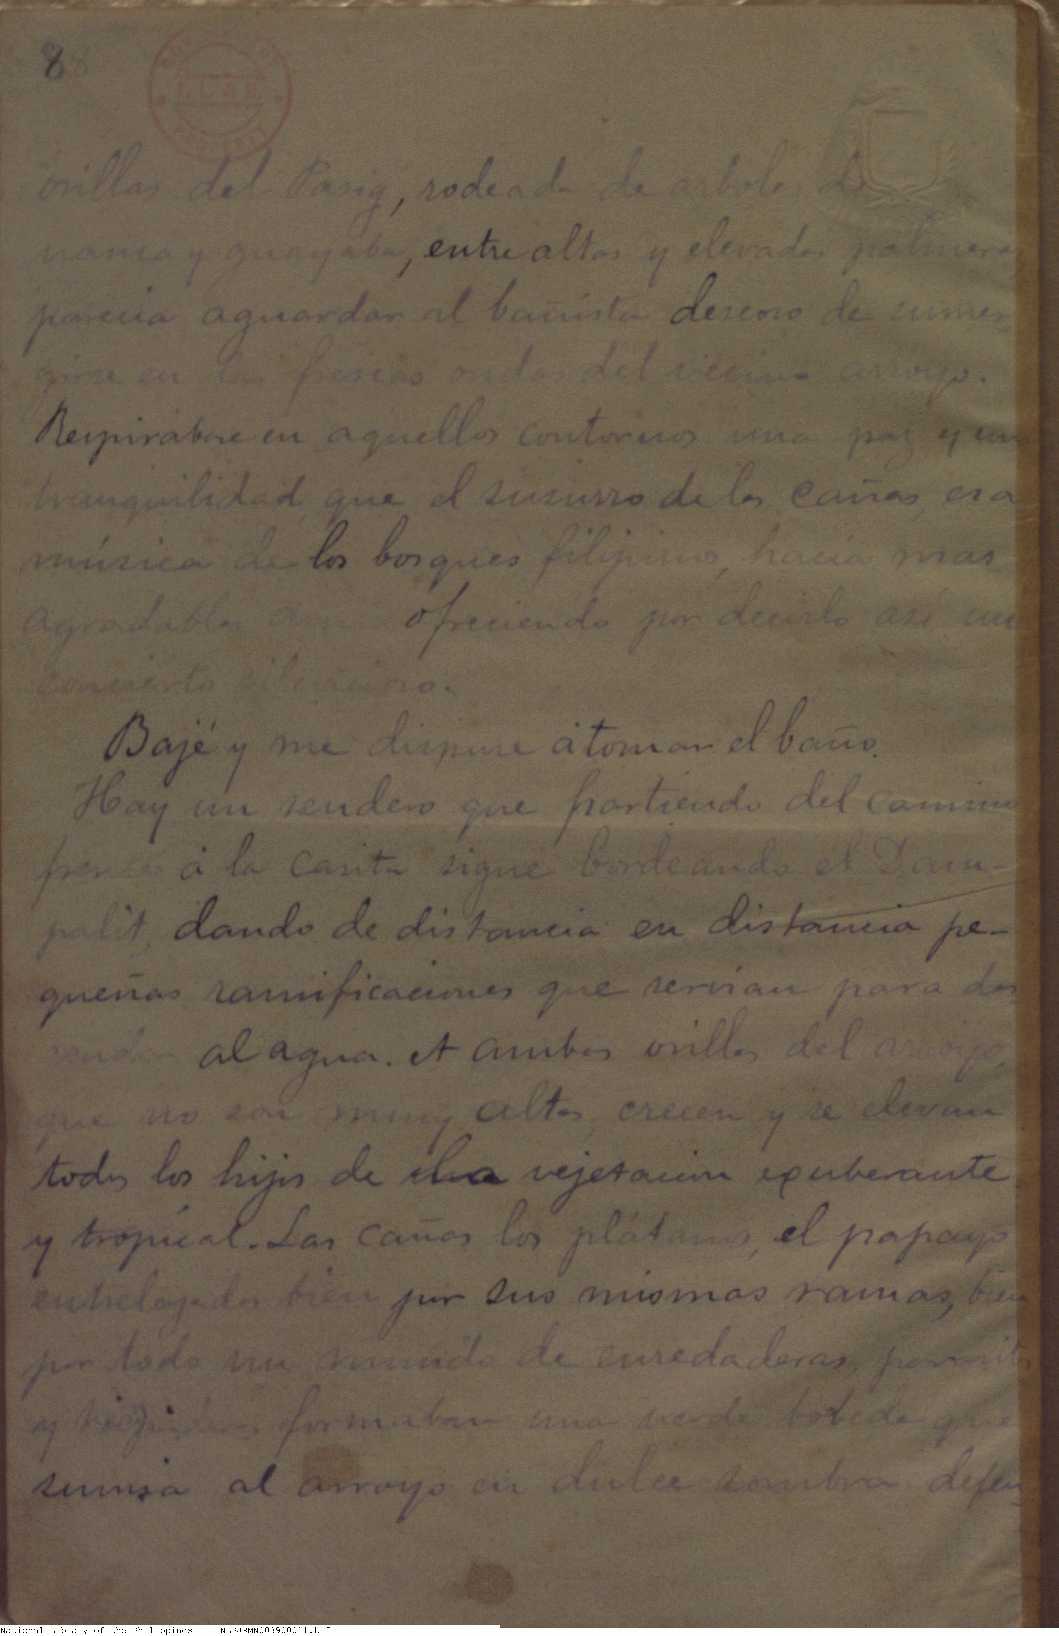 8
orillas del Pasig, rodeada de arboles de
y guayaba, entre altas y elevadas palmeras
parecia aguardar al bañista deseoso de sumer-
girse en las frescas ondas del vecino arroyo.
Respirábase en aquellos contornos una paz y una
tranquilidad que el susurro de las cañas, esa
música de los bosques filipinos, hacía mas
agradables ofreciendo por decirlo así un
concierto silencioso.
Bajé y me dispuse á tomar el baño.
Hay un sendero que partiendo del camino
á la casita sigue bordeando el Dam-
palit, dando de distancia en distancia pe-
queñas ramificaciones que servian para
al agua. A ambas orillas del arroyo,
que no son muy altas, crecen y se elevan
todos los hijos de la vejetacion exuberante
y tropical. Las cañas los plátanos, el papayo
entrelazados bien por sus mismas ramas, bien
por todo un mundo de enredaderas,
y formaban una verde bóveda que
sumia al arroyo en dulce sombra defen-
National Library of the Philippines